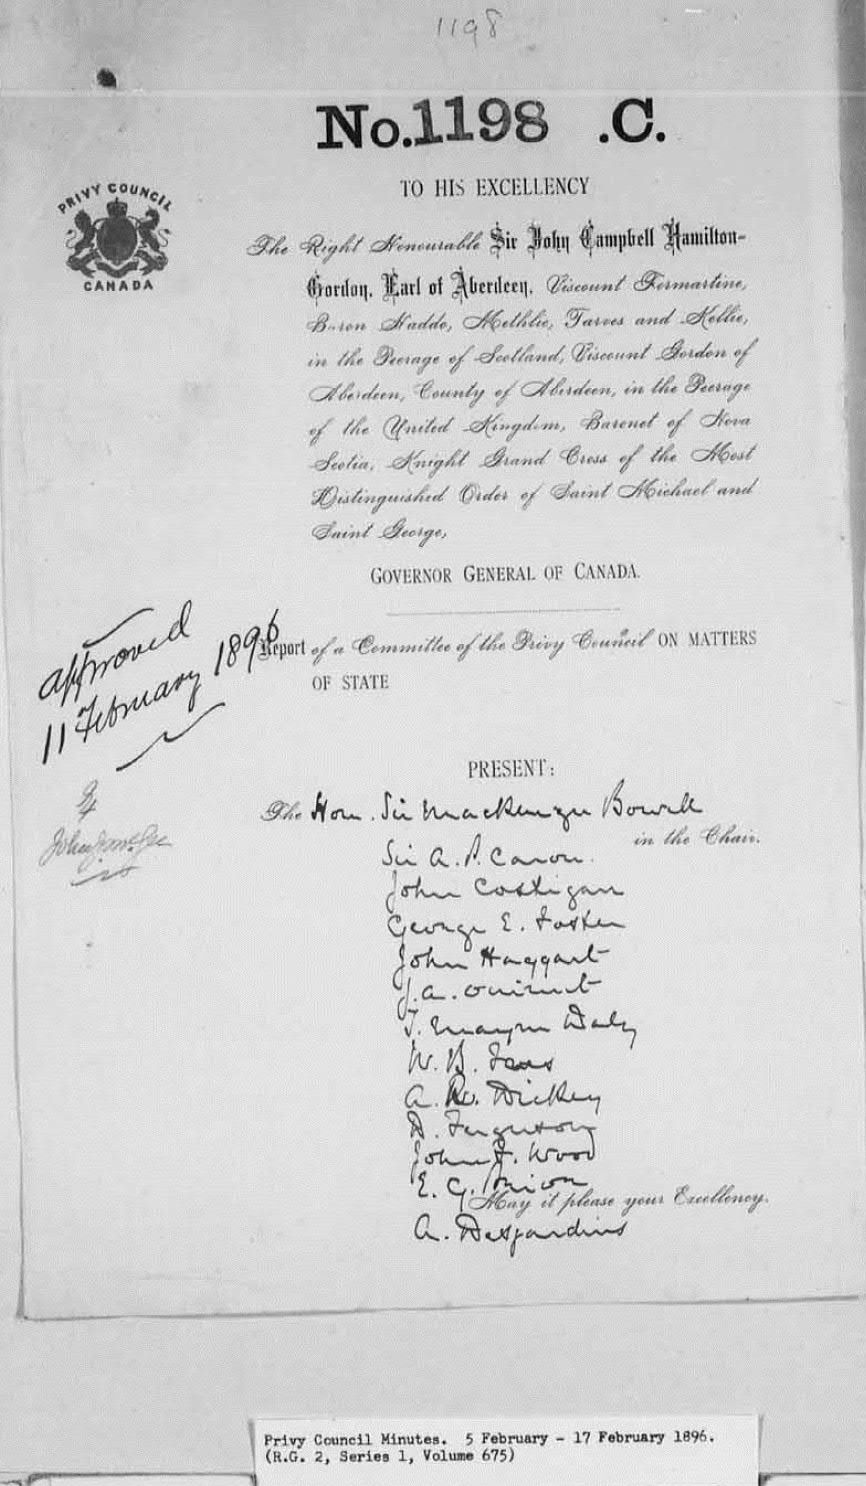 1198
No. 1198 .C.
PRIVY COUNCIL
CANADA
TO HIS EXCELLENCY
The Right Honourable Sir John Campbell Hamilton-
Gordon, Earl of Aberdeen, Viscount Formartine,
Baron Haddo, Methlic, Tarves and Kellie,
in the Peerage of Scotland, Viscount Gordon of
Aberdeen, County of Aberdeen, in the Peerage
of the United Kingdom, Baronet of Nova
Scotia, Knight Grand Cross of the Most
Distinguished Order of Saint Michael and
Saint George,
GOVERNOR GENERAL OF CANADA.
approved
11 February 1896
Report of a Committee of the Privy Council ON MATTERS
OF STATE
PRESENT:
The Hon. Sir Mackenzie Bowell
in the Chair.
Sir A. P. Caron.
John Costigan
George E. Foster
John Haggart
J. A. Ouimet
T. Mayne Daly
W. B. Ives
A. R. Dickey
D. Ferguson
John F. Wood
E. G. Prior
May it please your Excellency.
A. Desjardins
Privy Council Minutes. 5 February - 17 February 1896.
(R.G. 2, Series 1, Volume 675)